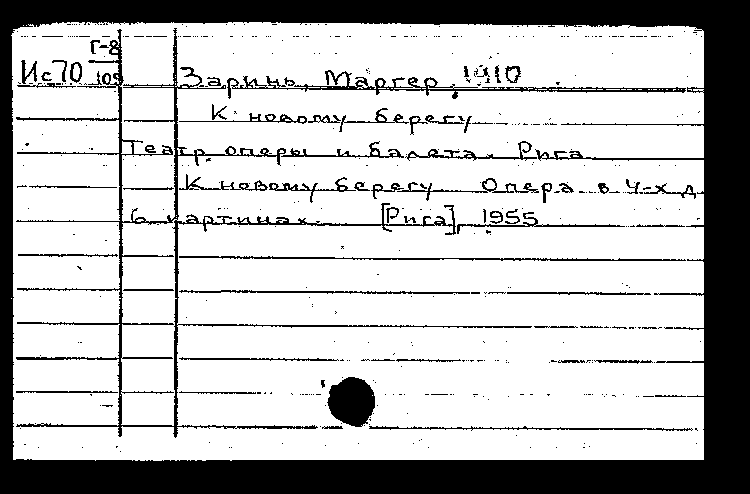 Г-8
Ис70 109
Заринь, Маргер, 1910
К новому берегу
Театр оперы и балета. Рига
К новому берегу. Опера в 4-х д.
6 картинах. [Рига], 1955